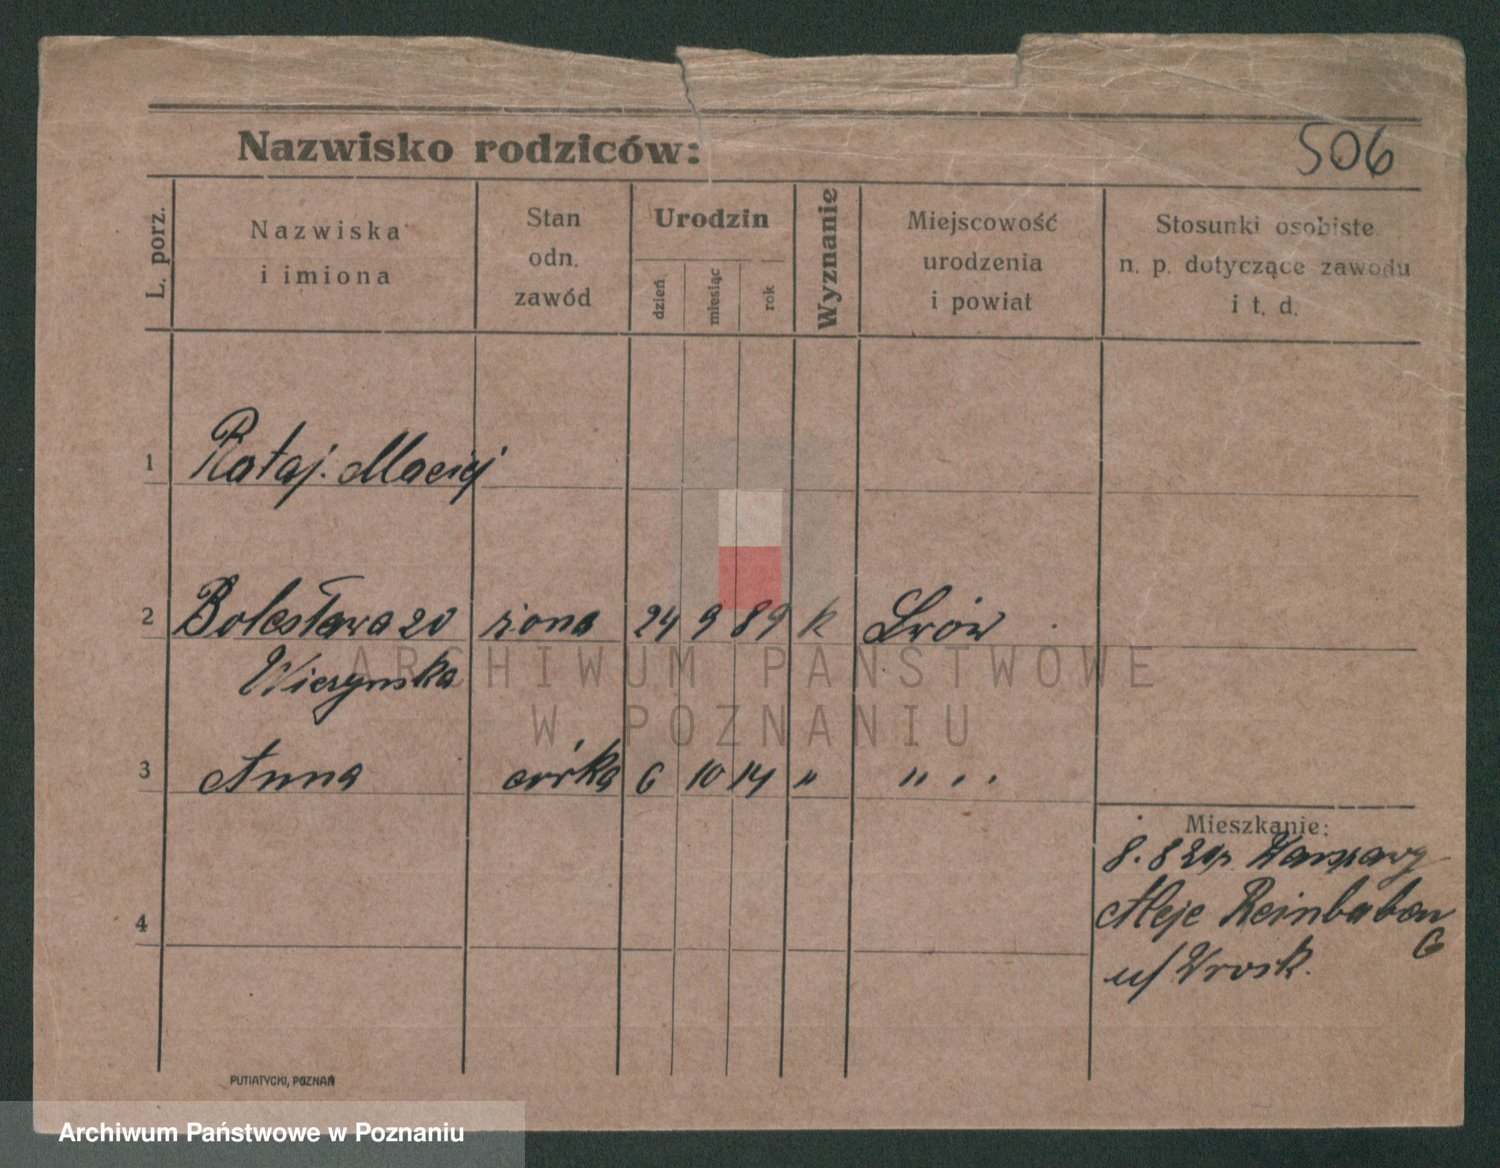 Nazwisko rodziców:
506
L. porz.
Nazwiska
i imiona
Stan
odn.
zawód
Urodzin
dzień
miesiąc
rok
Wyznanie
Miejscowość
urodzenia
i powiat
Stosunki osobiste
n. p. dotyczące zawodu
i t. d.
1 Rataj. Maciej
2 Bolesława zd żona 24 9 89 k Lwów
Wiczynska
3 Anna córka 6 10 14 " " " "
Mieszkanie:
8. 8 z Warszawy
Aleje Reinbaben
6
u/
4
PUTIATYCKI, POZNAŃ
ARCHIWUM PAŃSTWOWE
W POZNANIU
Archiwum Państwowe w Poznaniu